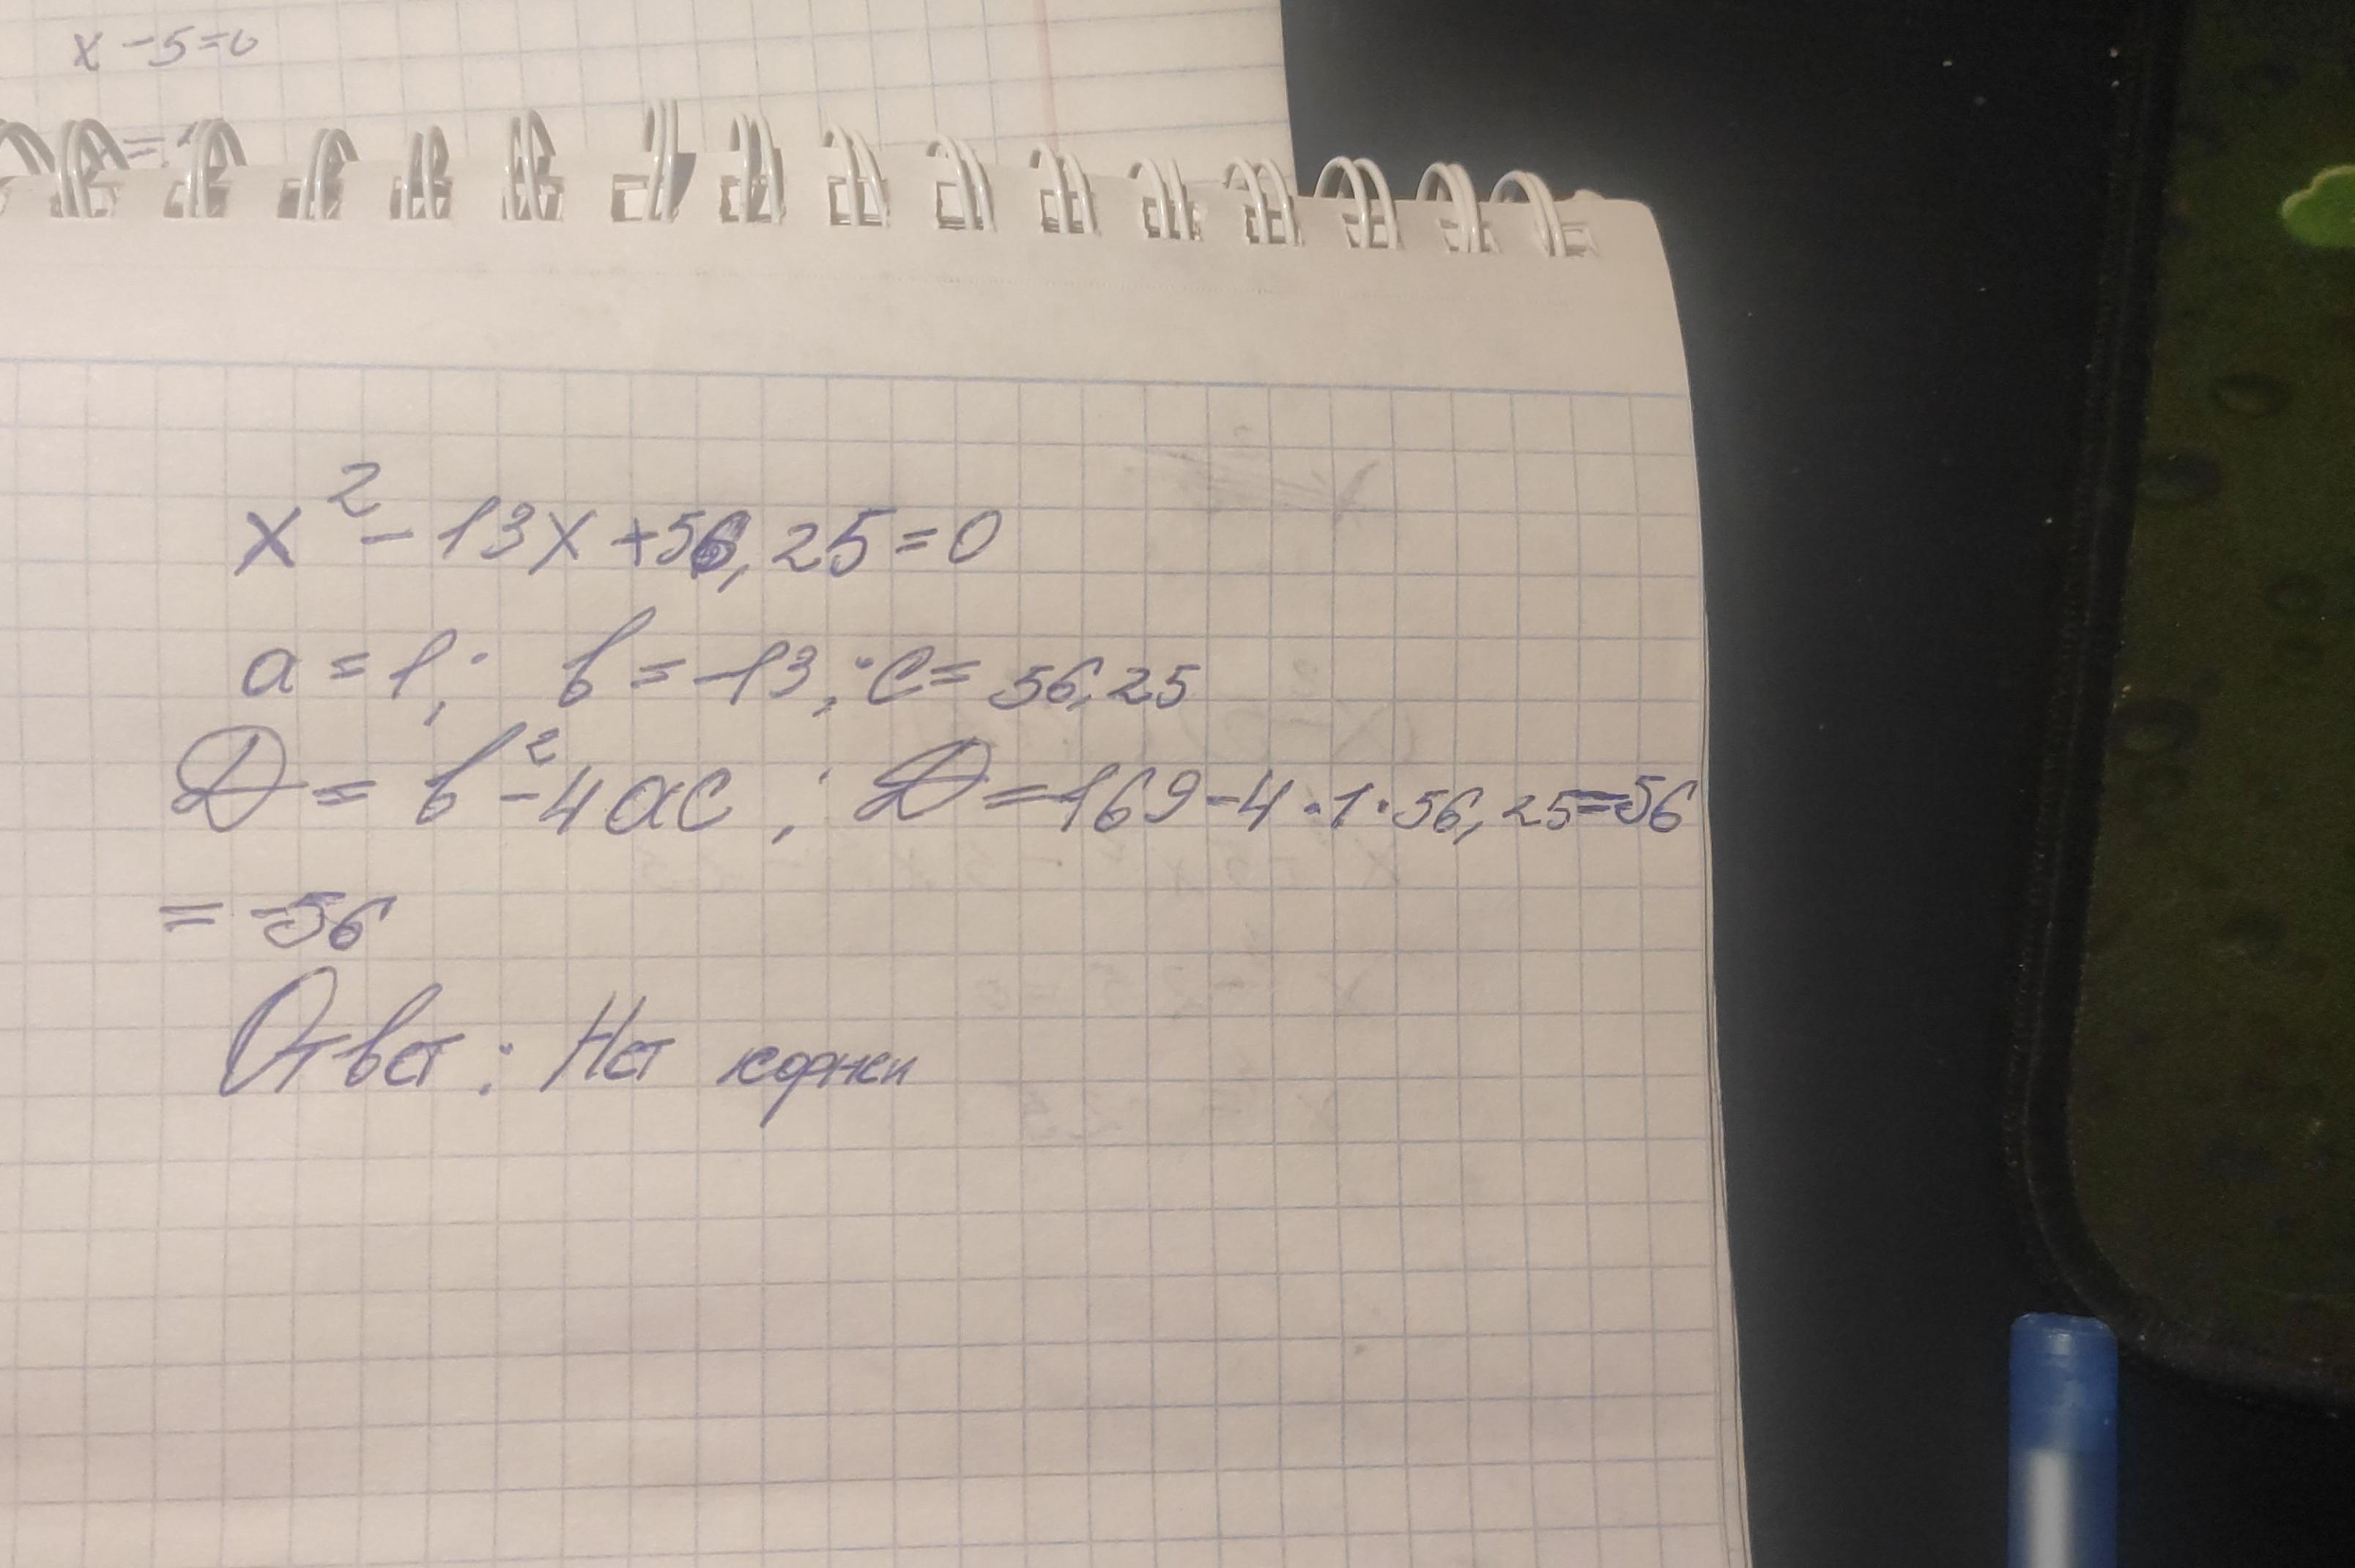 x - 5 = 0
x² - 13x + 56,25 = 0
a = 1; b = -13; c = 56,25
D = b² - 4ac; D = 169 - 4 · 1 · 56,25 = -56
= -56
Ответ: Нет корни